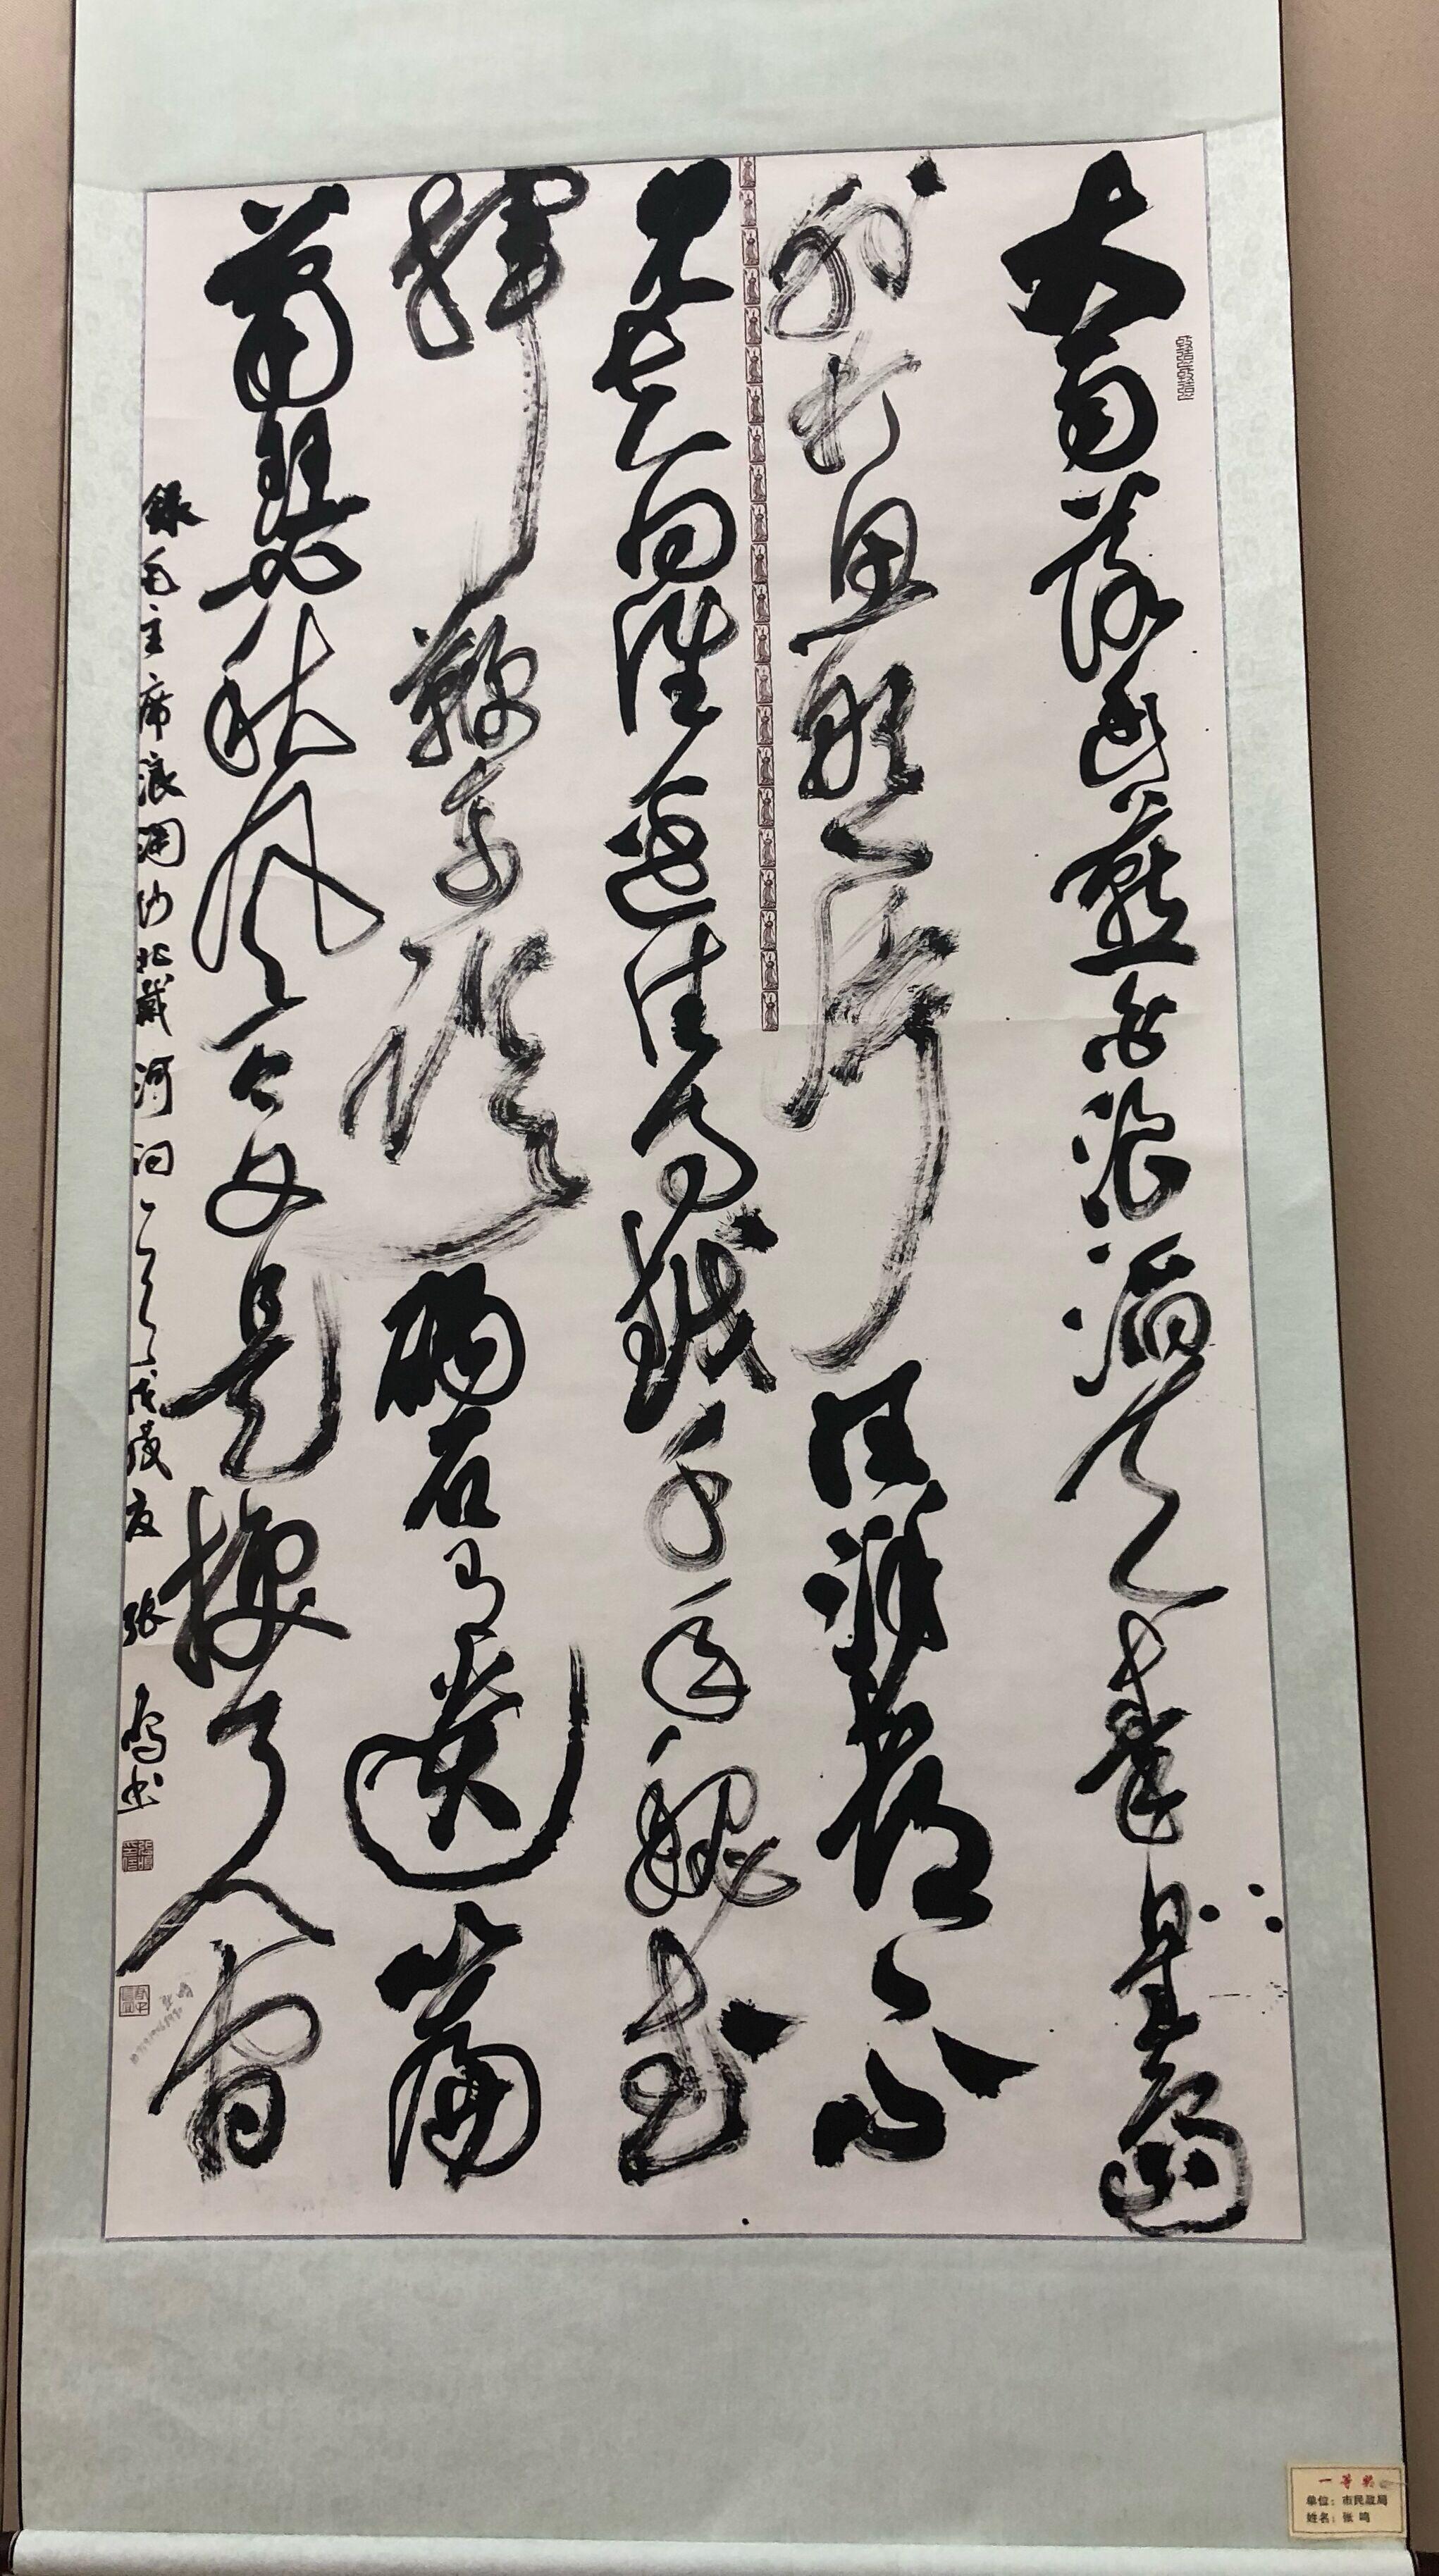 大雨落幽燕白浪滔天秦皇岛
外打鱼船一片汪洋都不
见知向谁边往事越千年魏武
挥鞭东临碣石有遗篇
萧瑟秋风今又是换了人间
録毛主席浪淘沙北戴河词一首戊戌夏 张鸣书
一等奖
单位：市民政局
姓名：张 鸣